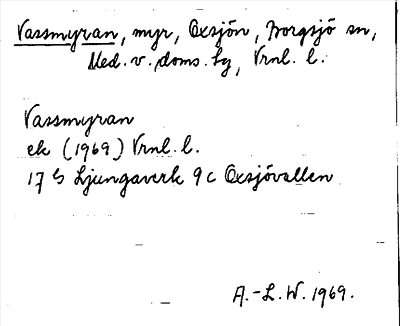 Vassmyran, myr, Oxsjön, Borgsjö sn,
Med. v. doms. lg, Vrnl. l.
Vassmyran
ek (1969) Vrnl. l.
17 G Ljungaverk 9 c Oxsjövallen
A.-L. W. 1969.